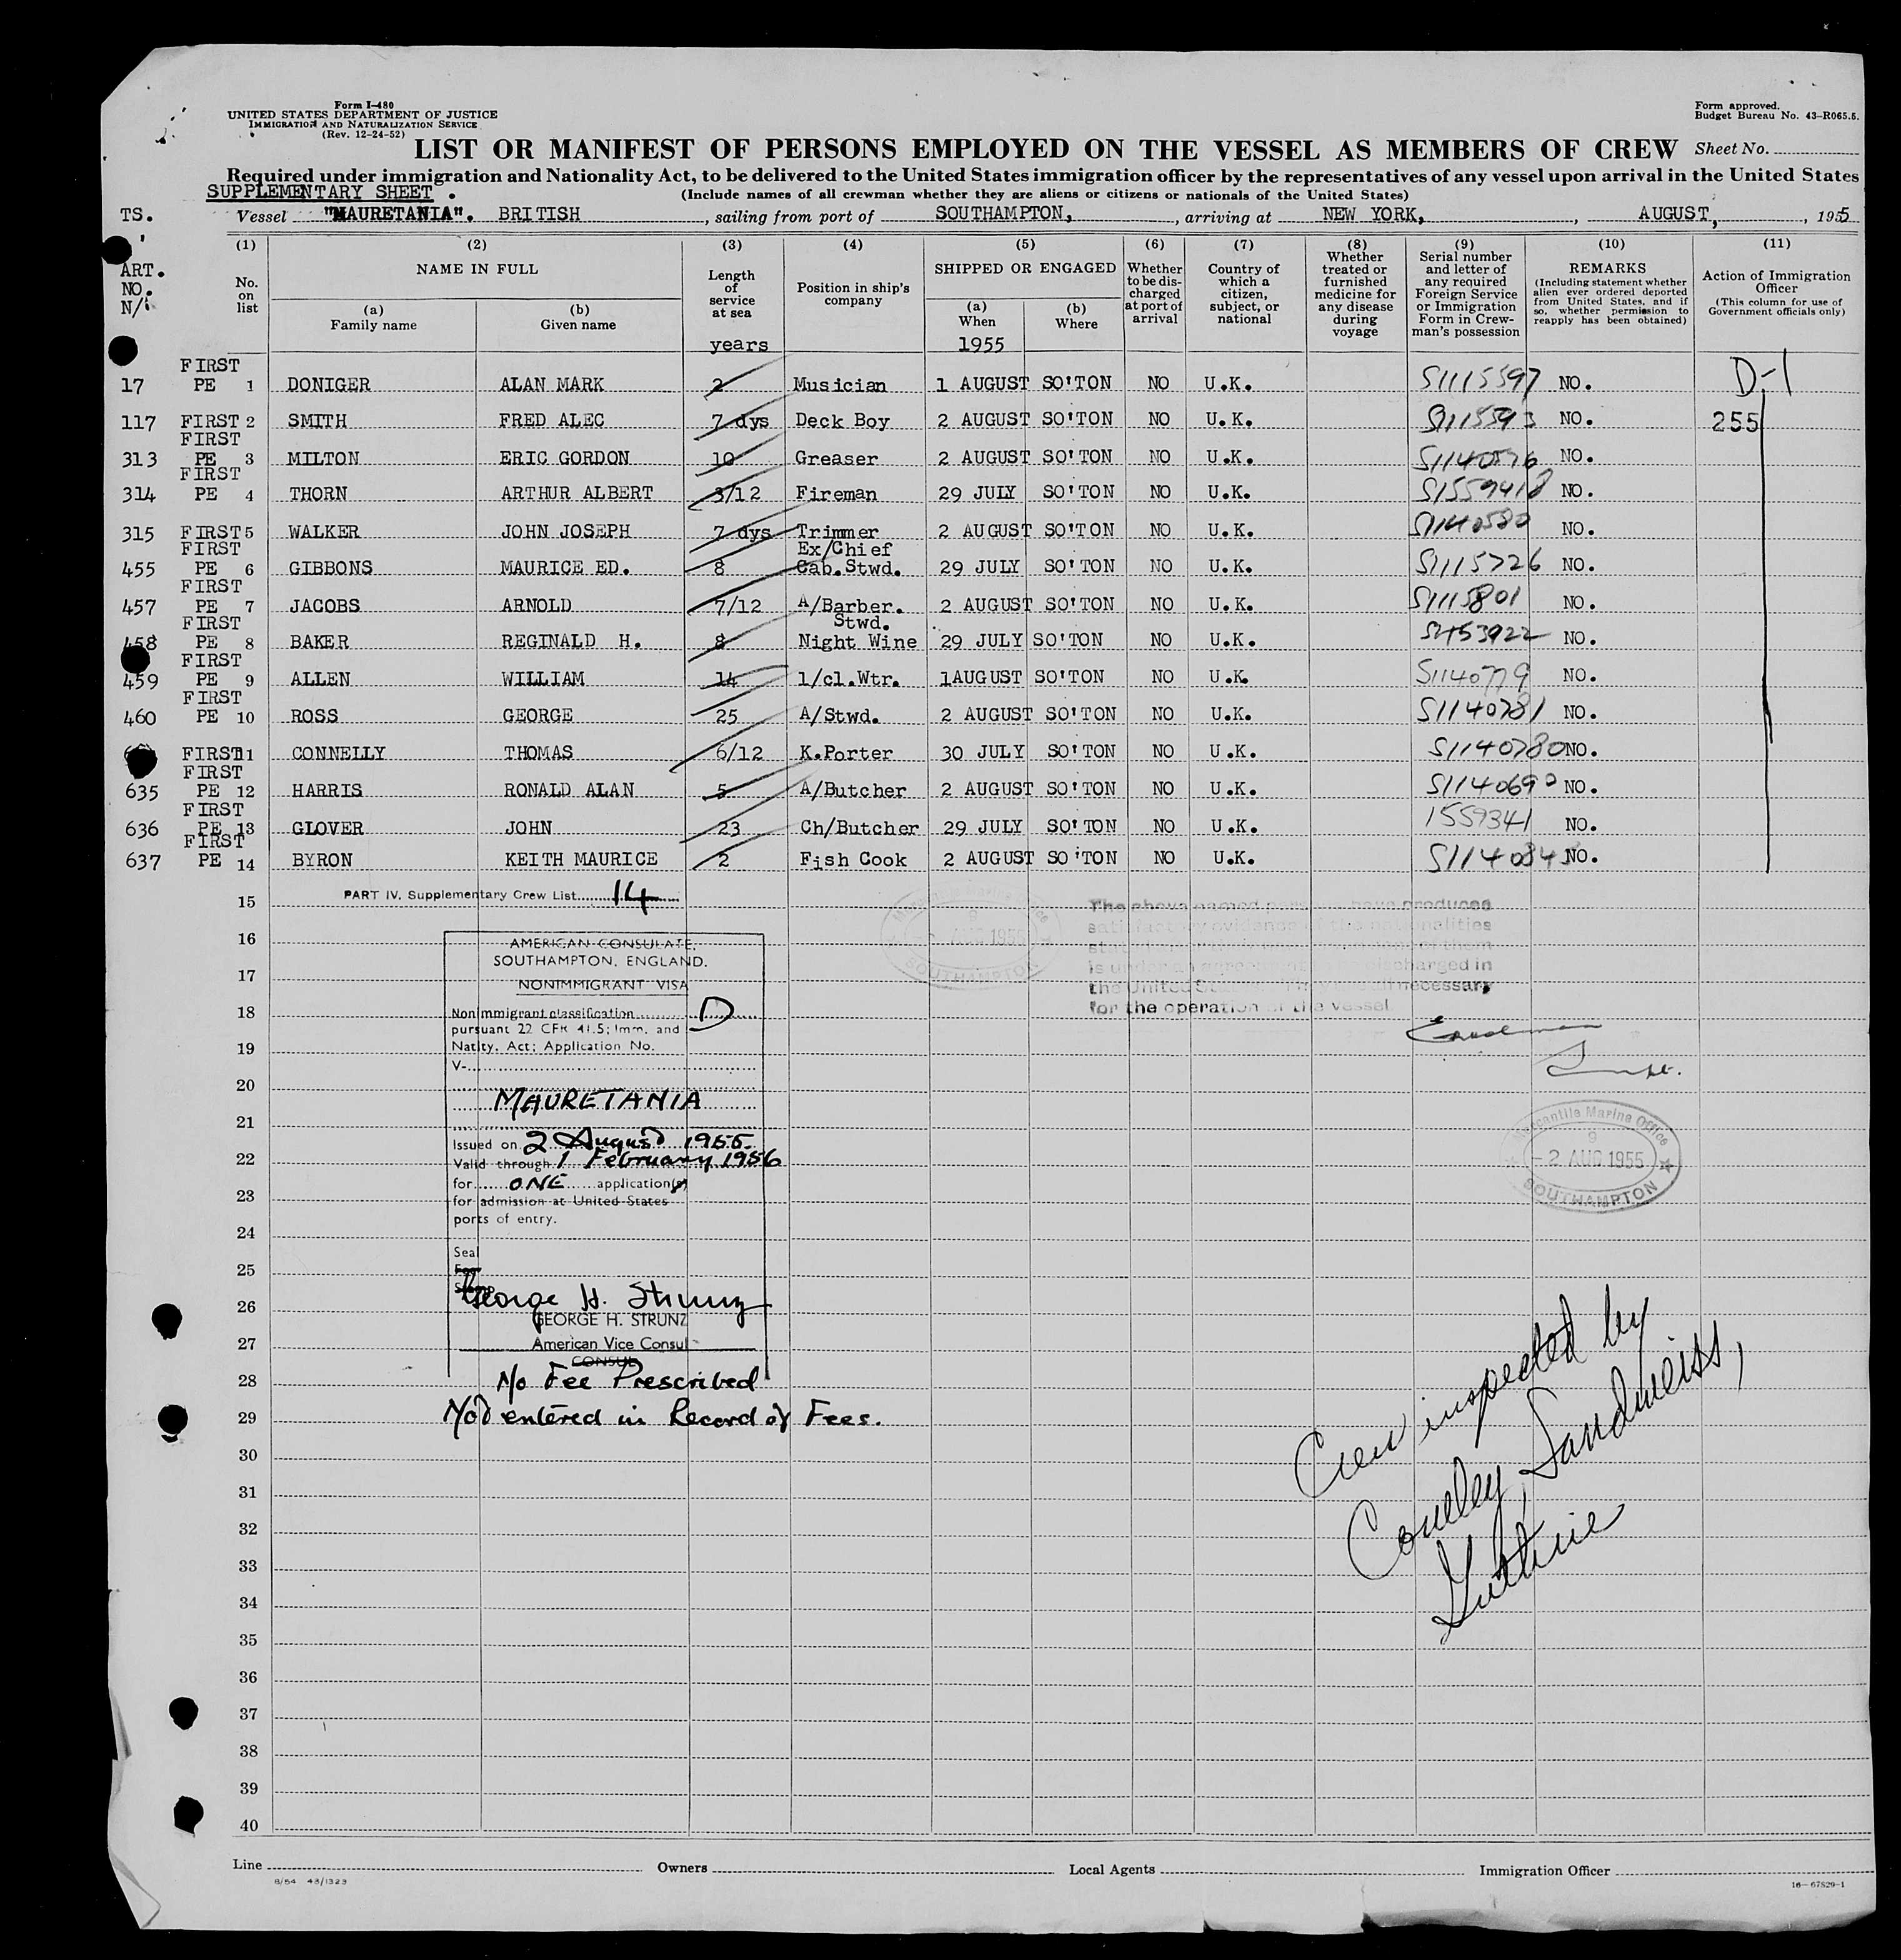 Form I-480
UNITED STATES DEPARTMENT OF JUSTICE
IMMIGRATION AND NATURALIZATION SERVICE
(Rev. 12-24-52)
Form approved.
Budget Bureau No. 43-R065.5.
LIST OR MANIFEST OF PERSONS EMPLOYED ON THE VESSEL AS MEMBERS OF CREW Sheet No.
Required under immigration and Nationality Act, to be delivered to the United States immigration officer by the representatives of any vessel upon arrival in the United States
SUPPLEMENTARY SHEET . (Include names of all crewman whether they are aliens or citizens or nationals of the United States)
TS. Vessel "MAURETANIA". BRITISH , sailing from port of SOUTHAMPTON, , arriving at NEW YORK, , AUGUST, , 1955
ART. NO. N/
(1) No. on list
(2) NAME IN FULL
(a) Family name
(b) Given name
(3) Length of service at sea
years
(4) Position in ship's company
(5) SHIPPED OR ENGAGED
(a) When
1955
(b) Where
(6) Whether to be discharged at port of arrival
(7) Country of which a citizen, subject, or national
(8) Whether treated or furnished medicine for any disease during voyage
(9) Serial number and letter of any required Foreign Service or Immigration Form in Crewman's possession
(10) REMARKS (Including statement whether alien ever ordered deported from United States, and if so, whether permission to reapply has been obtained)
(11) Action of Immigration Officer (This column for use of Government officials only)
17 FIRST PE 1 DONIGER ALAN MARK 2 Musician 1 AUGUST SO'TON NO U.K. S1115597 NO. D-1
117 FIRST 2 SMITH FRED ALEC 7 dys Deck Boy 2 AUGUST SO'TON NO U.K. S1115593 NO. 255
313 FIRST PE 3 MILTON ERIC GORDON 10 Greaser 2 AUGUST SO'TON NO U.K. NO.
314 FIRST PE 4 THORN ARTHUR ALBERT 3/12 Fireman 29 JULY SO'TON NO U.K. NO.
315 FIRST 5 WALKER JOHN JOSEPH 7 dys Trimmer 2 AUGUST SO'TON NO U.K. S1140580 NO.
455 FIRST PE 6 GIBBONS MAURICE ED. 8 Ex/Chief Cab.Stwd. 29 JULY SO'TON NO U.K. S1115726 NO.
457 FIRST PE 7 JACOBS ARNOLD 7/12 A/Barber. 2 AUGUST SO'TON NO U.K. S1115801 NO.
458 FIRST PE 8 BAKER REGINALD H. 8 Stwd. Night Wine 29 JULY SO'TON NO U.K. NO.
459 FIRST PE 9 ALLEN WILLIAM 14 1/cl.Wtr. 1AUGUST SO'TON NO U.K. S1140779 NO.
460 FIRST PE 10 ROSS GEORGE 25 A/Stwd. 2 AUGUST SO'TON NO U.K. S1140781 NO.
FIRST 11 CONNELLY THOMAS 6/12 K.Porter 30 JULY SO'TON NO U.K. S1140780 NO.
635 FIRST PE 12 HARRIS RONALD ALAN 5 A/Butcher 2 AUGUST SO'TON NO U.K. S1140690 NO.
636 FIRST PE 13 GLOVER JOHN 23 Ch/Butcher 29 JULY SO'TON NO U.K. 1559341 NO.
637 FIRST PE 14 BYRON KEITH MAURICE 2 Fish Cook 2 AUGUST SO'TON NO U.K. NO.
15 PART IV. Supplementary Crew List 14
The above named persons have produced
satisfactory evidence of the nationalities
is under an agreement discharged in
the United States necessary
for the operation of the vessel.
AUG 1955
SOUTHAMPTON
16
17
18
19
20
21
22
23
24
25
26
27
28
29
30
31
32
33
34
35
36
37
38
39
40
AMERICAN CONSULATE,
SOUTHAMPTON, ENGLAND.
NONIMMIGRANT VISA
Nonimmigrant classification D
pursuant 22 CFR 41.5; Imm. and
Natlty. Act; Application No.
V-
MAURETANIA
Issued on 2 August 1955.
Valid through 1 February 1956
for ONE application(s)
for admission at United States
ports of entry.
Seal
Fee
George H. Strunz
GEORGE H. STRUNZ
American Vice Consul
CONSUL
No Fee Prescribed
Not entered in Record of Fees.
Supt.
Mercantile Marine Office
9
-2 AUG 1955
SOUTHAMPTON
Crew inspected by
Sandweiss,
Guthrie
Line Owners Local Agents Immigration Officer
8/54 43/1323
16-67829-1